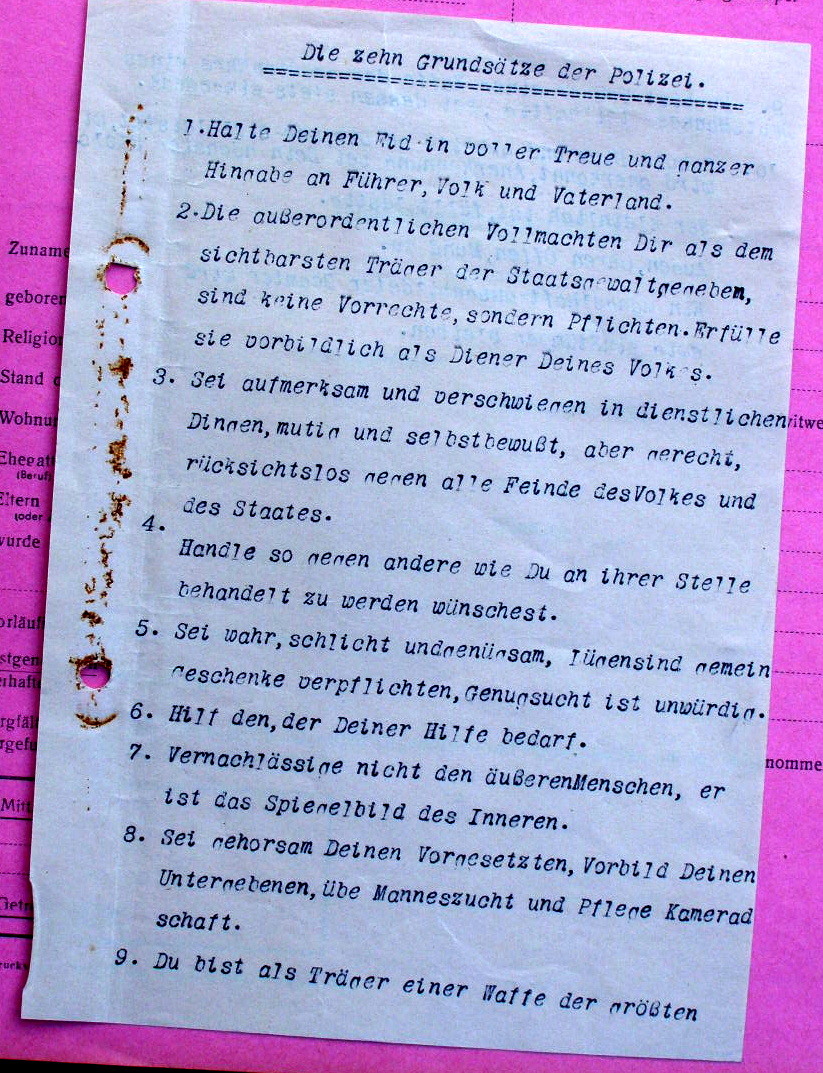 Die zehn Grundsätze der Polizei.
1.Halte Deinen Eid in voller Treue und ganzer
Hingabe an Führer, Volk und Vaterland.
2.Die außerordentlichen Vollmachten Dir als dem
sichtbarsten Träger der Staatsgewaltgegeben,
sind keine Vorrechte, sondern Pflichten. Erfülle
sie vorbildlich als Diener Deines Volkes.
3. Sei aufmerksam und verschwiegen in dienstlichen
Dingen, mutig und selbstbewußt, aber gerecht,
rücksichtslos gegen alle Feinde desVolkes und
des Staates.
4.
Handle so gegen andere wie Du an ihrer Stelle
behandelt zu werden wünschest.
5. Sei wahr, schlicht undgenügsam, Lügensind gemein
Geschenke verpflichten, Genußsucht ist unwürdig.
6. Hilf den, der Deiner Hilfe bedarf.
7. Vernachlässige nicht den äußerenMenschen, er
ist das Spiegelbild des Inneren.
8. Sei gehorsam Deinen Vorgesetzten, Vorbild Deinen
Untergebenen, übe Manneszucht und Pflege Kamerad
schaft.
9. Du bist als Träger einer Waffe der größten
Zuname
geboren
Religion
Stand
Wohnu
Ehegat
(Beruf)
Eltern
(oder
wurde
Mitt
nomme